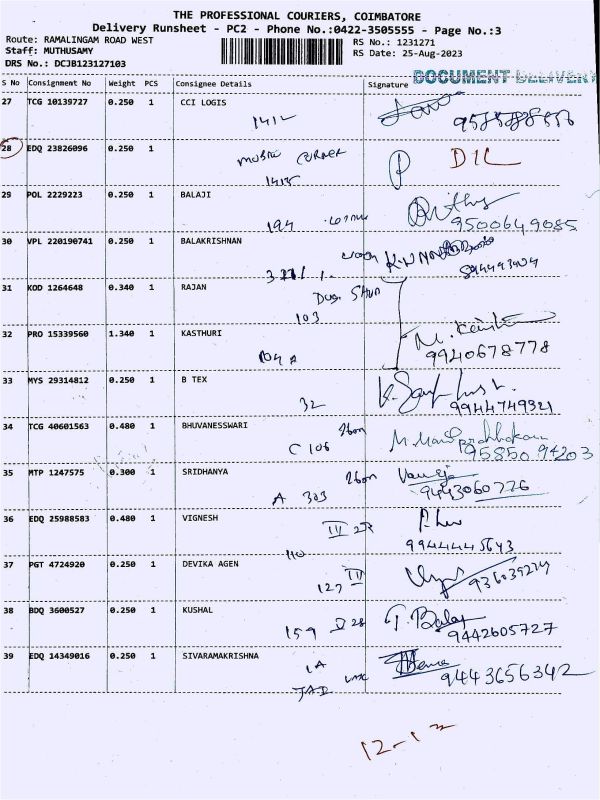 THE PROFESSIONAL COURIERS, COIMBATORE
Delivery Runsheet - PC2 - Phone No.:0422-3505555 - Page No.:3
Route: RAMALINGAM ROAD WEST RS No.: 1231271
Staff: MUTHUSAMY RS Date: 25-Aug-2023
DRS No.: DCJB123127103
DOCUMENT DELIVERY
S No Consignment No Weight PCS Consignee Details Signature
27 TCG 10139727 0.250 1 CCI LOGIS
1412
28 EDQ 23826096 0.250 1
DIL
29 POL 2229223 0.250 1 BALAJI
194
9500649085
30 VPL 220190741 0.250 1 BALAKRISHNAN
31 KOD 1264648 0.340 1 RAJAN
103
32 PRO 15339560 1.340 1 KASTHURI
104 A
9940678778
33 MYS 29314812 0.250 1 B TEX
32 9944749321
34 TCG 40601563 0.480 1 BHUVANESSWARI
C 106 9585094203
35 MTP 1247575 0.300 1 SRIDHANYA
A 303 9443060776
36 EDQ 25988583 0.480 1 VIGNESH
110 9944445643
37 PGT 4724920 0.250 1 DEVIKA AGEN
127
38 BDQ 3600527 0.250 1 KUSHAL
159 9442605727
39 EDQ 14349016 0.250 1 SIVARAMAKRISHNA
1A 9443656342
12-12